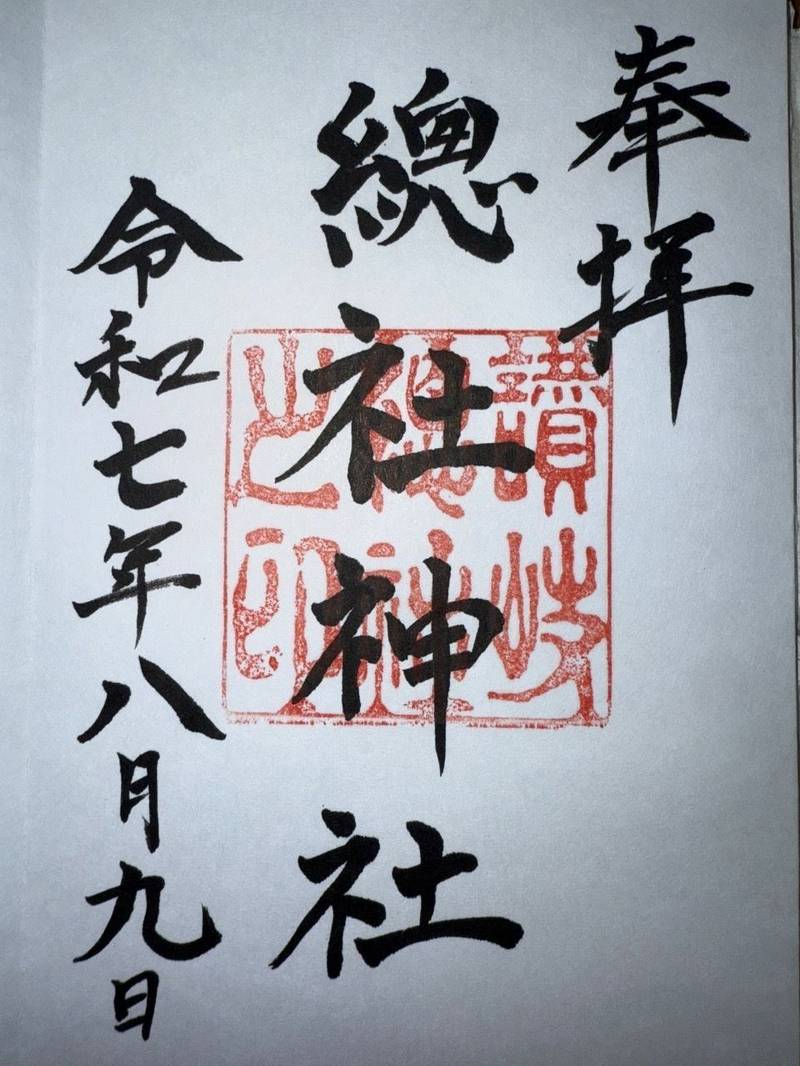 奉拝
總社神社
讃岐
總社
之印
令和七年八月九日